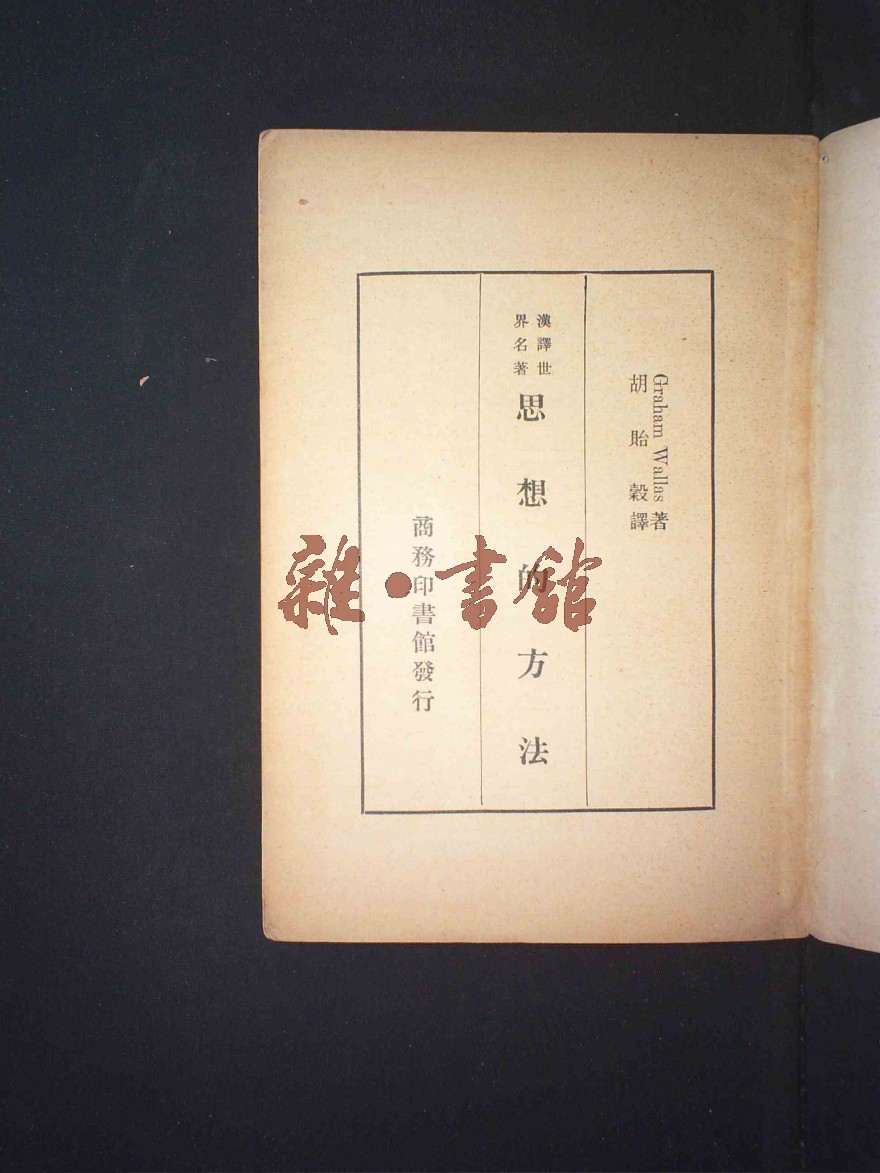 Graham Wallas著
胡貽穀譯
漢譯世
界名著
思想的方法
商務印書館發行
雜·書館